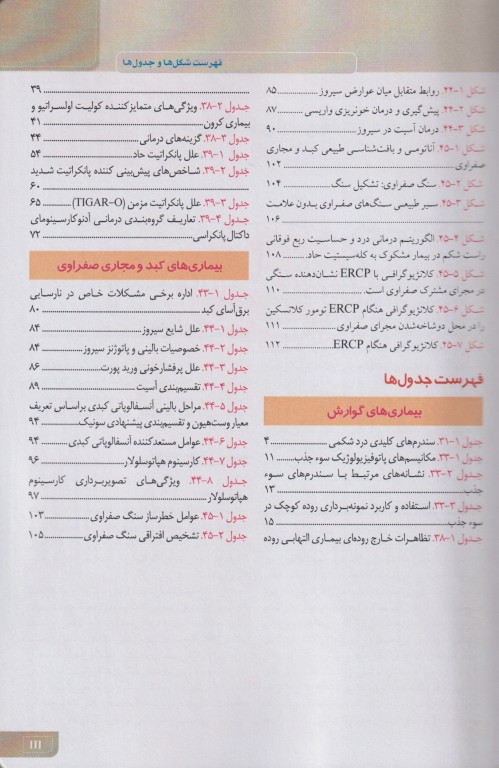 فهرست شکل‌ها و جدول‌ها
شکل ۱-۴۴. روابط متقابل میان عوارض سیروز ............ ۸۵
شکل ۲-۴۴. پیش‌گیری و درمان خونریزی واریسی ........ ۸۷
شکل ۳-۴۴. درمان آسیت در سیروز ............ ۹۰
شکل ۱-۴۵. آناتومی و بافت‌شناسی طبیعی کبد و مجاری
صفراوی ............ ۱۰۲
شکل ۲-۴۵. سنگ صفراوی: تشکیل سنگ ............ ۱۰۴
شکل ۳-۴۵. سیر طبیعی سنگ‌های صفراوی بدون علامت
............ ۱۰۶
شکل ۴-۴۵. الگوریتم درمانی درد و حساسیت ربع فوقانی
راست شکم در بیمار مشکوک به کله‌سیستیت حاد. ........ ۱۰۸
شکل ۵-۴۵. کلانژیوگرافی با ERCP نشان‌دهنده سنگی
در مجرای مشترک صفراوی است. ............ ۱۱۰
شکل ۶-۴۵. کلانژیوگرافی هنگام ERCP تومور کلاتسکین
را در محل دوشاخه‌شدن مجرای صفراوی ............ ۱۱۱
شکل ۷-۴۵. کلانژیوگرافی هنگام ERCP ............ ۱۱۲
فهرست جدول‌ها
بیماری‌های گوارش
جدول ۱-۳۱. سندرم‌های کلیدی درد شکمی ............ ۴
جدول ۱-۳۳. مکانیسم‌های پاتوفیزیولوژیک سوء جذب ........ ۱۱
جدول ۲-۳۳. نشانه‌های مرتبط با سندرم‌های سوء
جذب ............ ۱۳
جدول ۳-۳۳. استفاده و کاربرد نمونه‌برداری روده کوچک در
سوء جذب ............ ۱۵
جدول ۱-۳۸. تظاهرات خارج روده‌ای بیماری التهابی روده
............ ۳۹
جدول ۲-۳۸. ویژگی‌های متمایزکننده کولیت اولسراتیو و
بیماری کرون ............ ۴۱
جدول ۳-۳۸. گزینه‌های درمانی ............ ۴۴
جدول ۱-۳۹. علل پانکراتیت حاد ............ ۵۴
جدول ۲-۳۹. شاخص‌های پیش‌بینی کننده پانکراتیت شدید
............ ۶۰
جدول ۳-۳۹. علل پانکراتیت مزمن (TIGAR-O) ........ ۶۵
جدول ۴-۳۹. تعاریف گروه‌بندی درمانی آدنوکارسینومای
داکتال پانکراسی ............ ۷۲
بیماری‌های کبد و مجاری صفراوی
جدول ۱-۴۳. اداره برخی مشکلات خاص در نارسایی
برق‌آسای کبد ............ ۸۰
جدول ۱-۴۴. علل شایع سیروز ............ ۸۴
جدول ۲-۴۴. خصوصیات بالینی و پاتوژنز سیروز ............ ۸۴
جدول ۳-۴۴. علل پرفشارخونی ورید پورت ............ ۸۶
جدول ۴-۴۴. تقسیم‌بندی آسیت ............ ۸۹
جدول ۵-۴۴. مراحل بالینی آنسفالوپاتی کبدی براساس تعریف
معیار وست‌هیون و تقسیم‌بندی پیشنهادی سونیک ........ ۹۴
جدول ۶-۴۴. عوامل مستعدکننده آنسفالوپاتی کبدی ........ ۹۴
جدول ۷-۴۴. کارسینوم هپاتوسلولار ............ ۹۶
جدول ۸-۴۴. ویژگی‌های تصویربرداری کارسینوم
هپاتوسلولار ............ ۹۷
جدول ۱-۴۵. عوامل خطرساز سنگ صفراوی ............ ۱۰۳
جدول ۲-۴۵. تشخیص افتراقی سنگ صفراوی ............ ۱۰۵
III